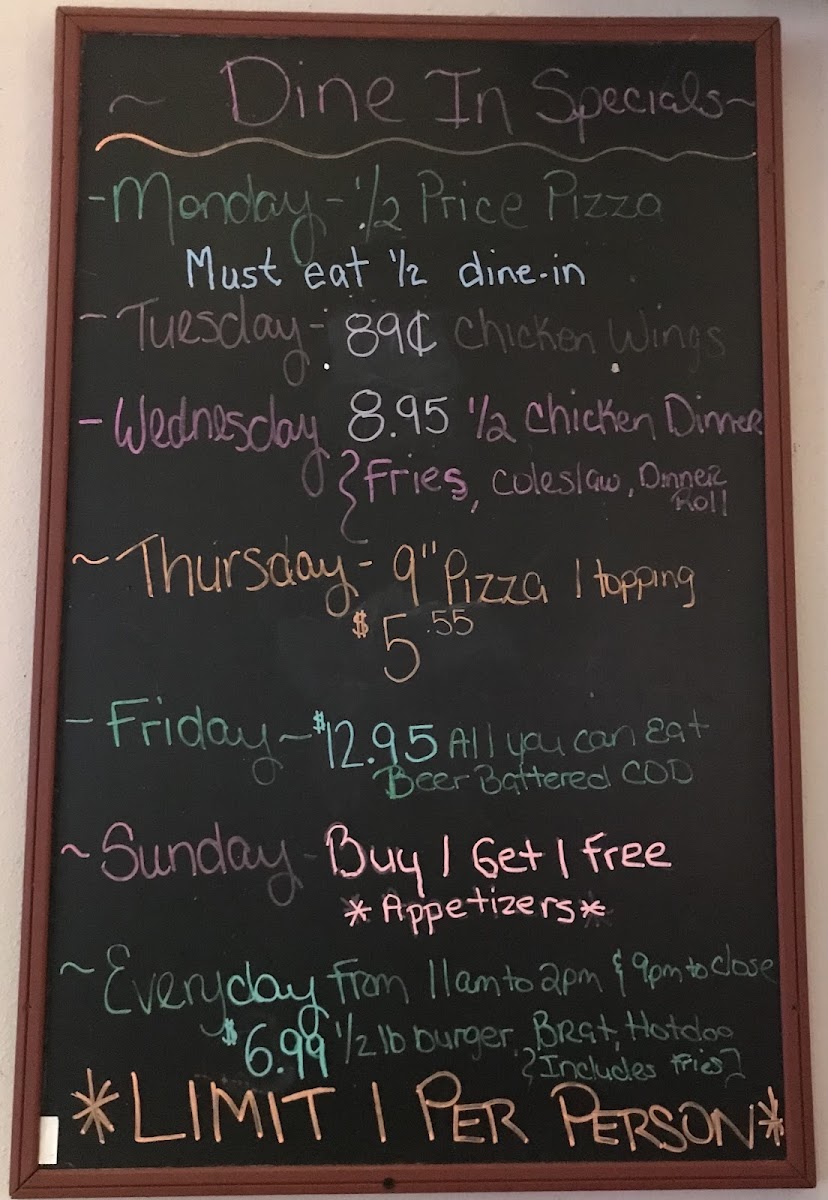 ~ Dine In Specials ~
- Monday - 1/2 Price Pizza
Must eat 1/2 dine-in
- Tuesday - 89¢ Chicken Wings
- Wednesday 8.95 1/2 Chicken Dinner
{ Fries, Coleslaw, Dinner
Roll
~ Thursday - 9" Pizza 1 topping
$5.55
- Friday ~ $12.95 All you can Eat
Beer Battered COD
~ Sunday - Buy 1 Get 1 Free
* Appetizers *
~ Everyday From 11am to 2pm & 9pm to close
$6.99 1/2 lb burger, Brat, Hotdog
{Includes fries}
*LIMIT 1 PER PERSON*